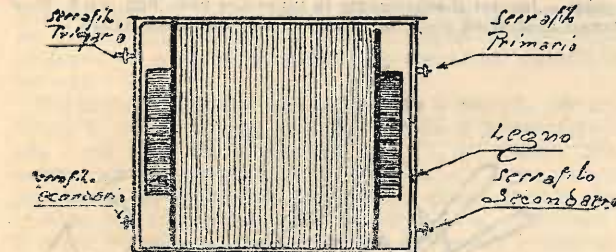 Serrafilo
Primario
Serrafilo
Primario
Legno
Serrafilo
Secondario
serrafilo
econdario